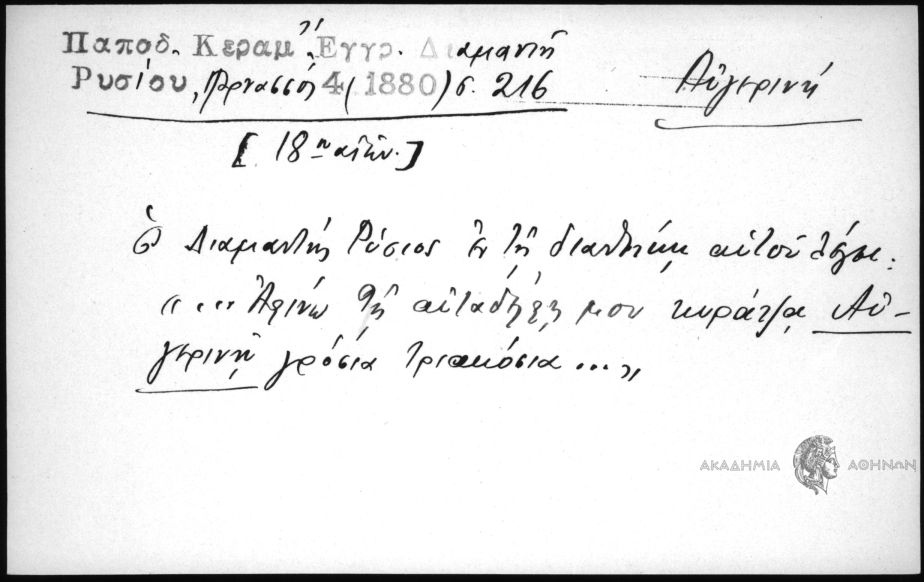 Παποδ. Κεραμ. Ἔγγρ. Διαμαντῆ
Ρυσίου, Παρνασσός 4 (1880) σ. 216
Αὐγερινή
[ 18ος αἰών. ]
Ὁ Διαμαντῆς Ρύσιος ἐν τῇ διαθήκῃ αὐτοῦ λέγει:
«... Ἀφίνω τῇ αὐταδέλφῃ μου κυράτζᾳ Αὐ-
γερινῇ γρόσια τριακόσια ...»
ΑΚΑΔΗΜΙΑ ΑΘΗΝΩΝ